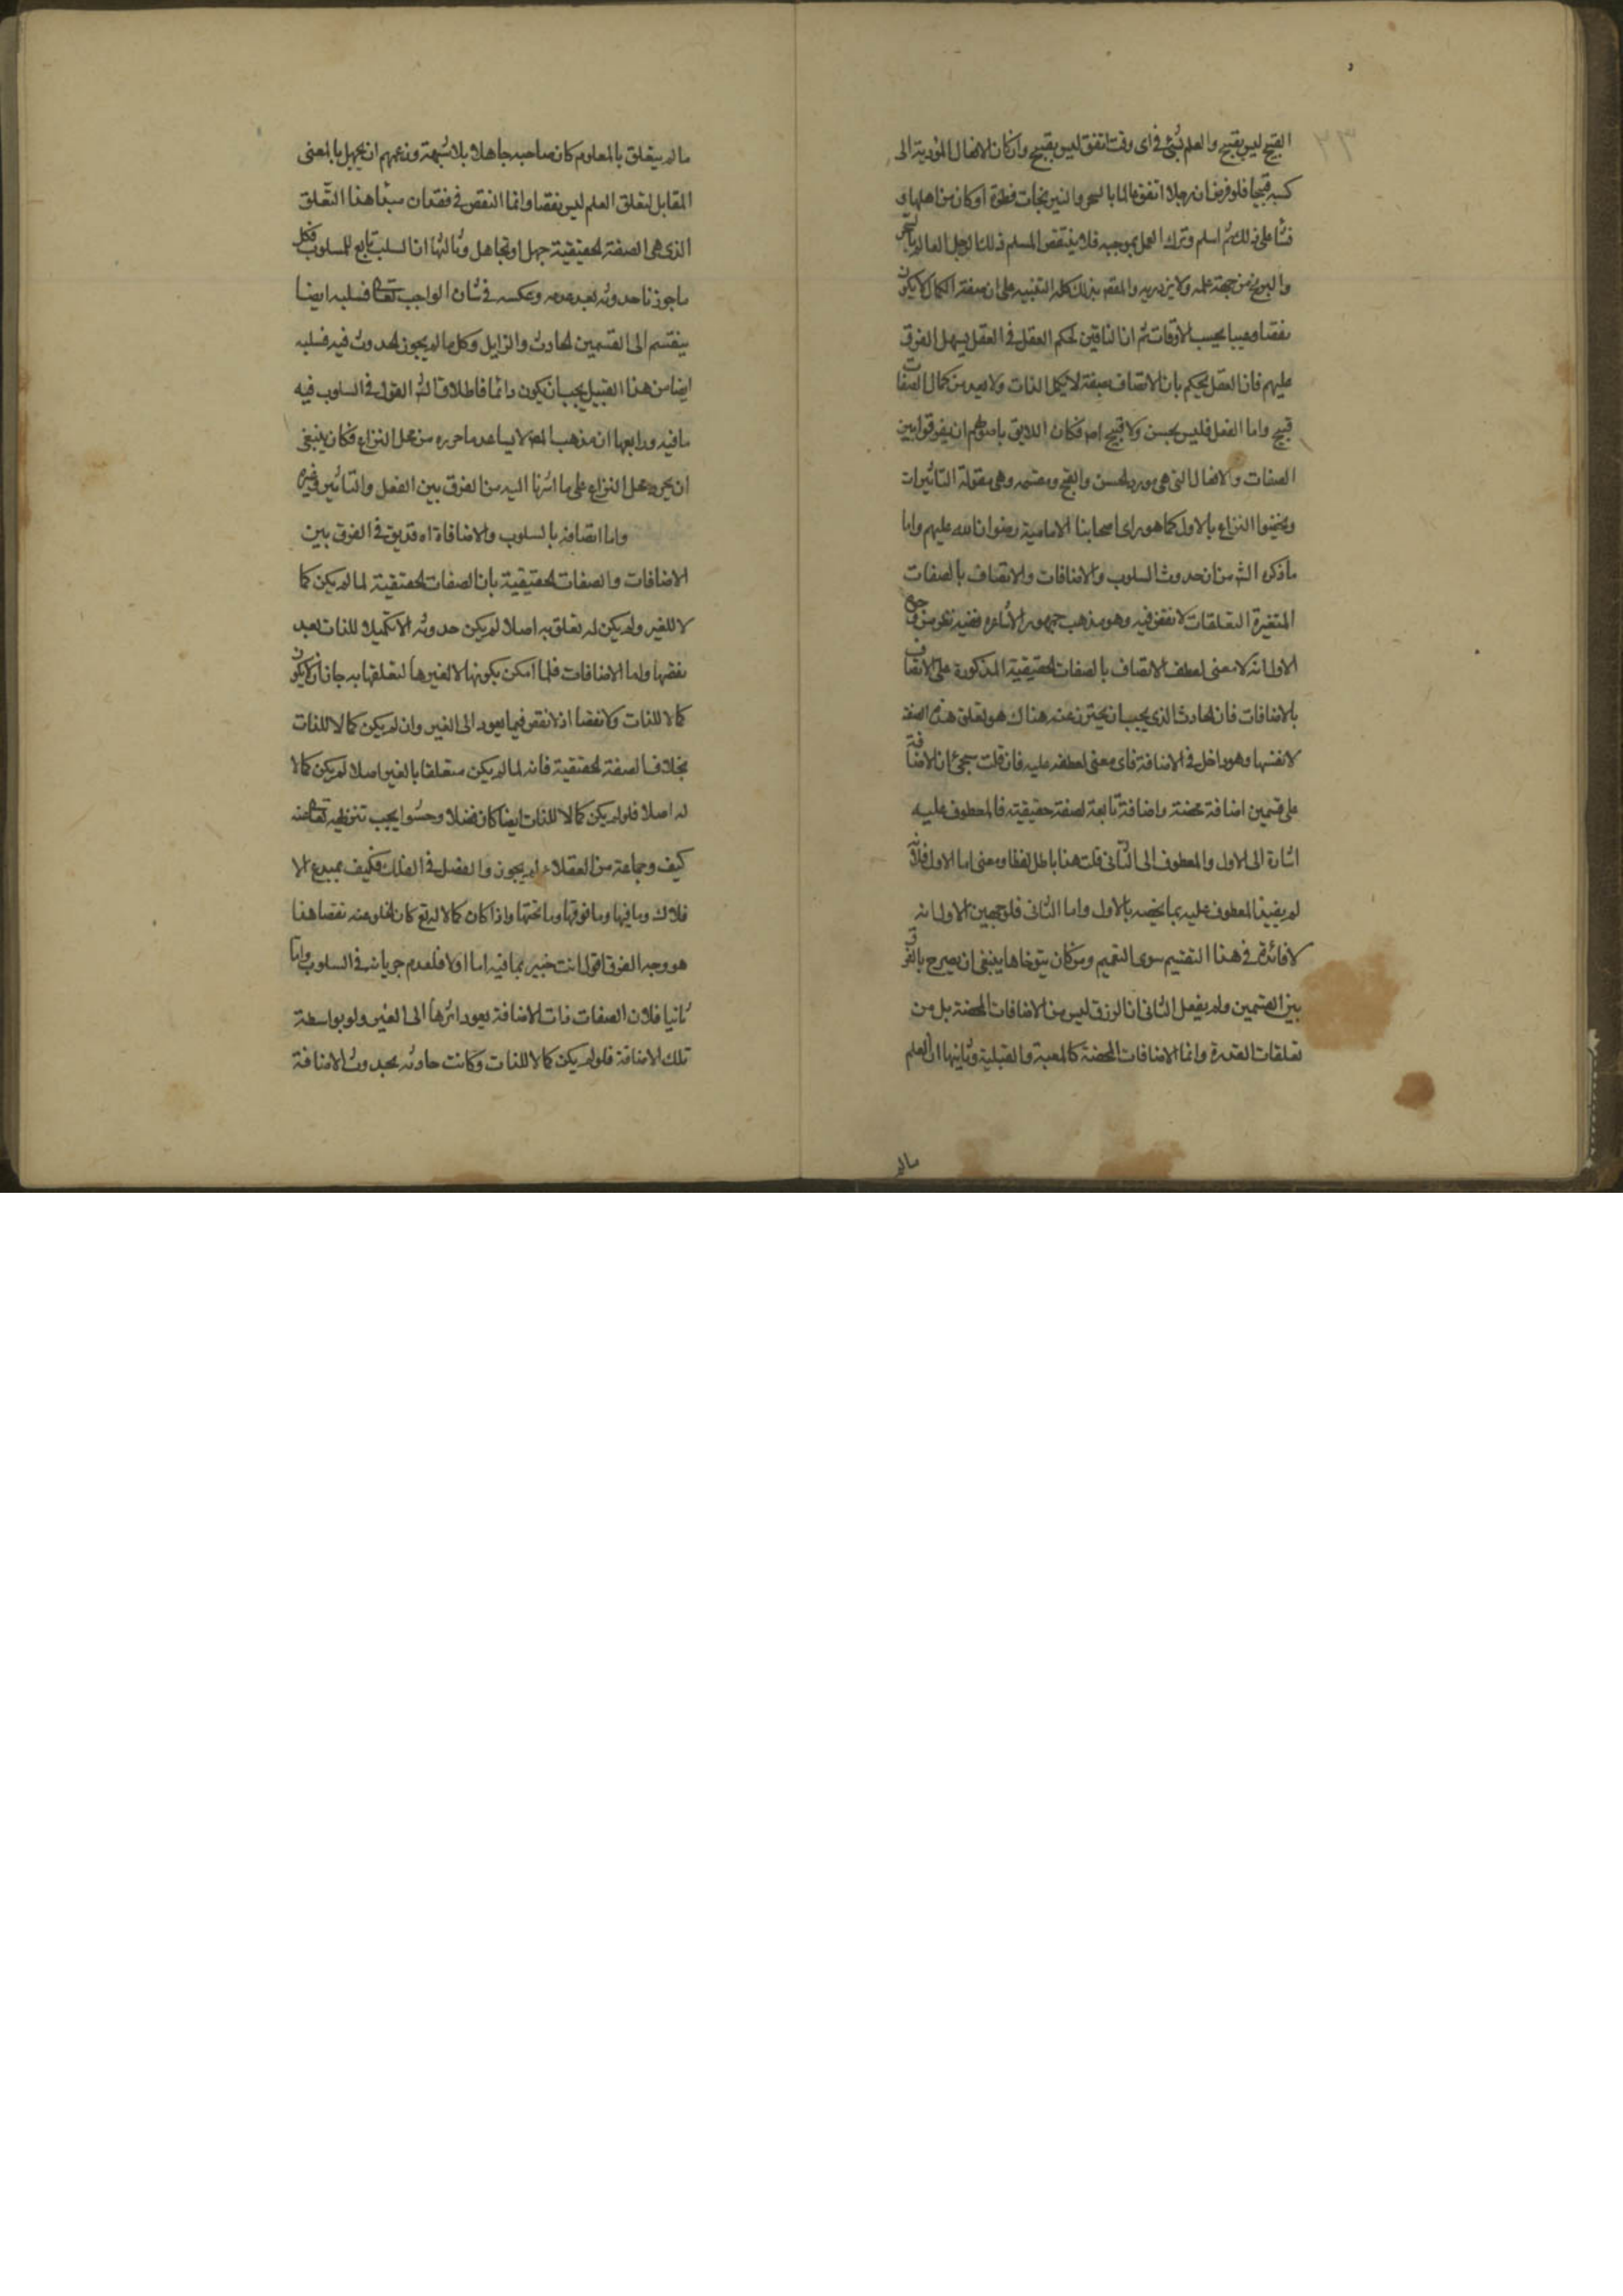 ٢٣
القبيح ليس بقبيح والعلم بشئ فى اى وقت اتفق ليس بقبيح وان كان الافعال المؤدية الى
كسبه قبيحا فلو فرض ان رجلا اتفق عالما بالسحر والنيرنجات فطرة او كان من اهلها و
نشا على ذلك ثم اسلم وترك العمل بموجبه فلا ينتقص المسلم ذلك الرجل العالم بالسحر
من جهة علمه ولا يزدريه والمقصود بذلك كله التنبيه على ان صفة الكمال لا يكون
نقصا وعيبا بحسب الاوقات ثم ان النافين لحكم العقل فى العقل يسهل الفرق
عليهم فان العقل يحكم بان الاتصاف بصفة لا يكمل الذات ولا يعد من كمال الصفات
قبيح واما الفعل فليس بحسن ولا قبيح اه فكان اللايق باصولهم ان يفرقوا بين
الصفات والافعال التى هى مورد الحسن والقبح وهى مقولة التاثيرات
ويخصوا النزاع بالاول كما هو راى اصحابنا الامامية رضوان الله عليهم واما
ما ذكره الشه من ان حدوث السلوب والاضافات والاتصاف بالصفات
المتغيرة التعلقات لا نقض فيه وهو مذهب جمهور الاشاعره ففيه نظر من وجوه
الاول انه لا معنى لعطف الاتصاف بالصفات الحقيقية المذكورة على الاتصاف
بالاضافات فان الحادث الذى يجب ان يحترز عنه هناك هو تعلق هذه الصفة
لا نفسها وهو داخل فى الاضافة فاى معنى لعطفه عليه فان قلت سيجئ ان الاضافة
على قسمين اضافة محضة واضافة تابعة لصفة حقيقية فالمعطوف عليه
اشارة الى الاول والمعطوف الى الثانى قلت هذا باطل لفظا ومعنى اما الاول فلانه
لم يقيد المعطوف عليه بما يخصه بالاول واما الثانى فلوجهين الاول انه
لا فائدة فى هذا التقسيم سوى التعميم ومن كان يتوخاها ينبغى ان يصرح بالفرق
بين القسمين ولم يفعل الثانى ان الرزق ليس من الاضافات المحضة بل من
تعلقات القدرة وانما الاضافات المحضة كالمعية والقبلية وثانيها ان العلم
مالم
مالم يتعلق بالمعلوم كان صاحبه جاهلا بلا شبهة وزعمهم ان الجهل بالمعنى
المقابل لتعلق العلم ليس نقصا وانما النقص فى فقدان مبدا هذا التعلق
الذى هى الصفة الحقيقية جهل او تجاهل وثالثها ان السلب تابع للمسلوب فكل
ما جوزنا حدوثه بعد عدمه وعكسه فى شان الواجب تعالى فسلبه ايضا
ينقسم الى القسمين الحادث والزايل وكل مالم يجوز الحدوث فيه فسلبه
ايضا من هذا القبيل يجب ان يكون دائما فاطلاق الشه القول فى السلوب فيه
ما فيه ورابعها ان مذهب المص لا يساعد ما حرره من محل النزاع فكان ينبغى
ان يحرر محل النزاع على ما اشرنا اليه من الفرق بين الفعل والتاثير وغيره
واما اتصافه بالسلوب والاضافات اه قد يق فى الفرق بين
الاضافات والصفات الحقيقية بان الصفات الحقيقية لما لم يكن كما
لا للغير ولم يكن له تعلق به اصلا لم يكن حدوثه الا تكميلا للذات بعد
نقصها واما الاضافات فلما امكن بكونها لا لغيرها لتعلقها به جاز ان لا يكون
كمالا للذات ولا نقصا اذ لا نقص فيما يعود الى الغير وان لم يكن كمالا للذات
بخلاف الصفة الحقيقية فانه لما لم يكن متعلقا بالغير اصلا لم يكن كمالا
له اصلا فلو لم يكن كمالا للذات ايضا كان فضلا وحشوا يجب تنزيهه تعالى عنه
كيف وجماعة من العقلاء لم يجوزوا الفضل فى الفلك فكيف بمبدع الا
فلاك وما فيها وما فوقها وما تحتها واذا كان كمالا له تع كان الخلو عنه نقصا هذا
هو وجه الفرق اقول انت خبير بما فيه اما اولا فلعدم جريانه فى السلوب واما
ثانيا فلان الصفات ذات الاضافة يعود اثرها الى الغير ولو بواسطة
تلك الاضافة فلو لم يكن كمالا للذات وكانت حادثه بحدوث الاضافة